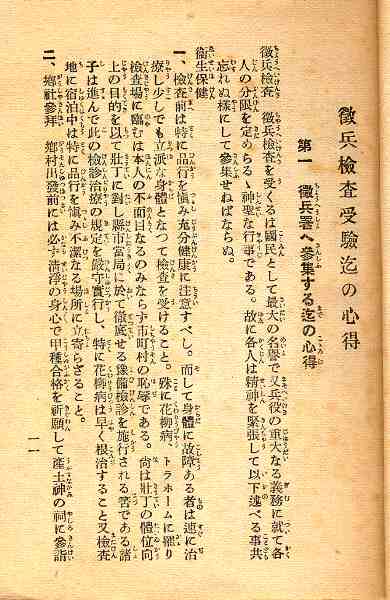 徴兵檢査受驗迄の心得
第一　徴兵署へ參集する迄の心得
徴兵檢査　徴兵檢査を受くるは國民として最大の名譽で又兵役の重大なる義務に就て各
人の分限を定めらるゝ神聖な行事である。故に各人は精神を緊張して以下述べる事共
忘れぬ樣にして參集せねばならぬ。
衞生保健
一、檢査前は特に品行を愼み充分健康に注意すべし。而して身體に故障ある者は速に治
療し少しでも立派な身體となつて檢査を受けること。殊に花柳病、トラホームに罹り
檢査場に臨むは本人の不面目なるのみならず市町村の恥辱である。尙は壯丁の體位向
上の目的を以て壯丁に對し縣市當局に於て徹底せる豫備檢診を施行される筈である諸
子は進んで此の檢診治療の規定を嚴守實行し、特に花柳病は早く根治すること又檢査
地に宿泊中は特に品行を愼み不潔なる場所に立寄らざること。
二、鄕社參拜　鄕村出發前には必ず淸淨の身心で甲種合格を祈願して產土神の祠に參詣
一一